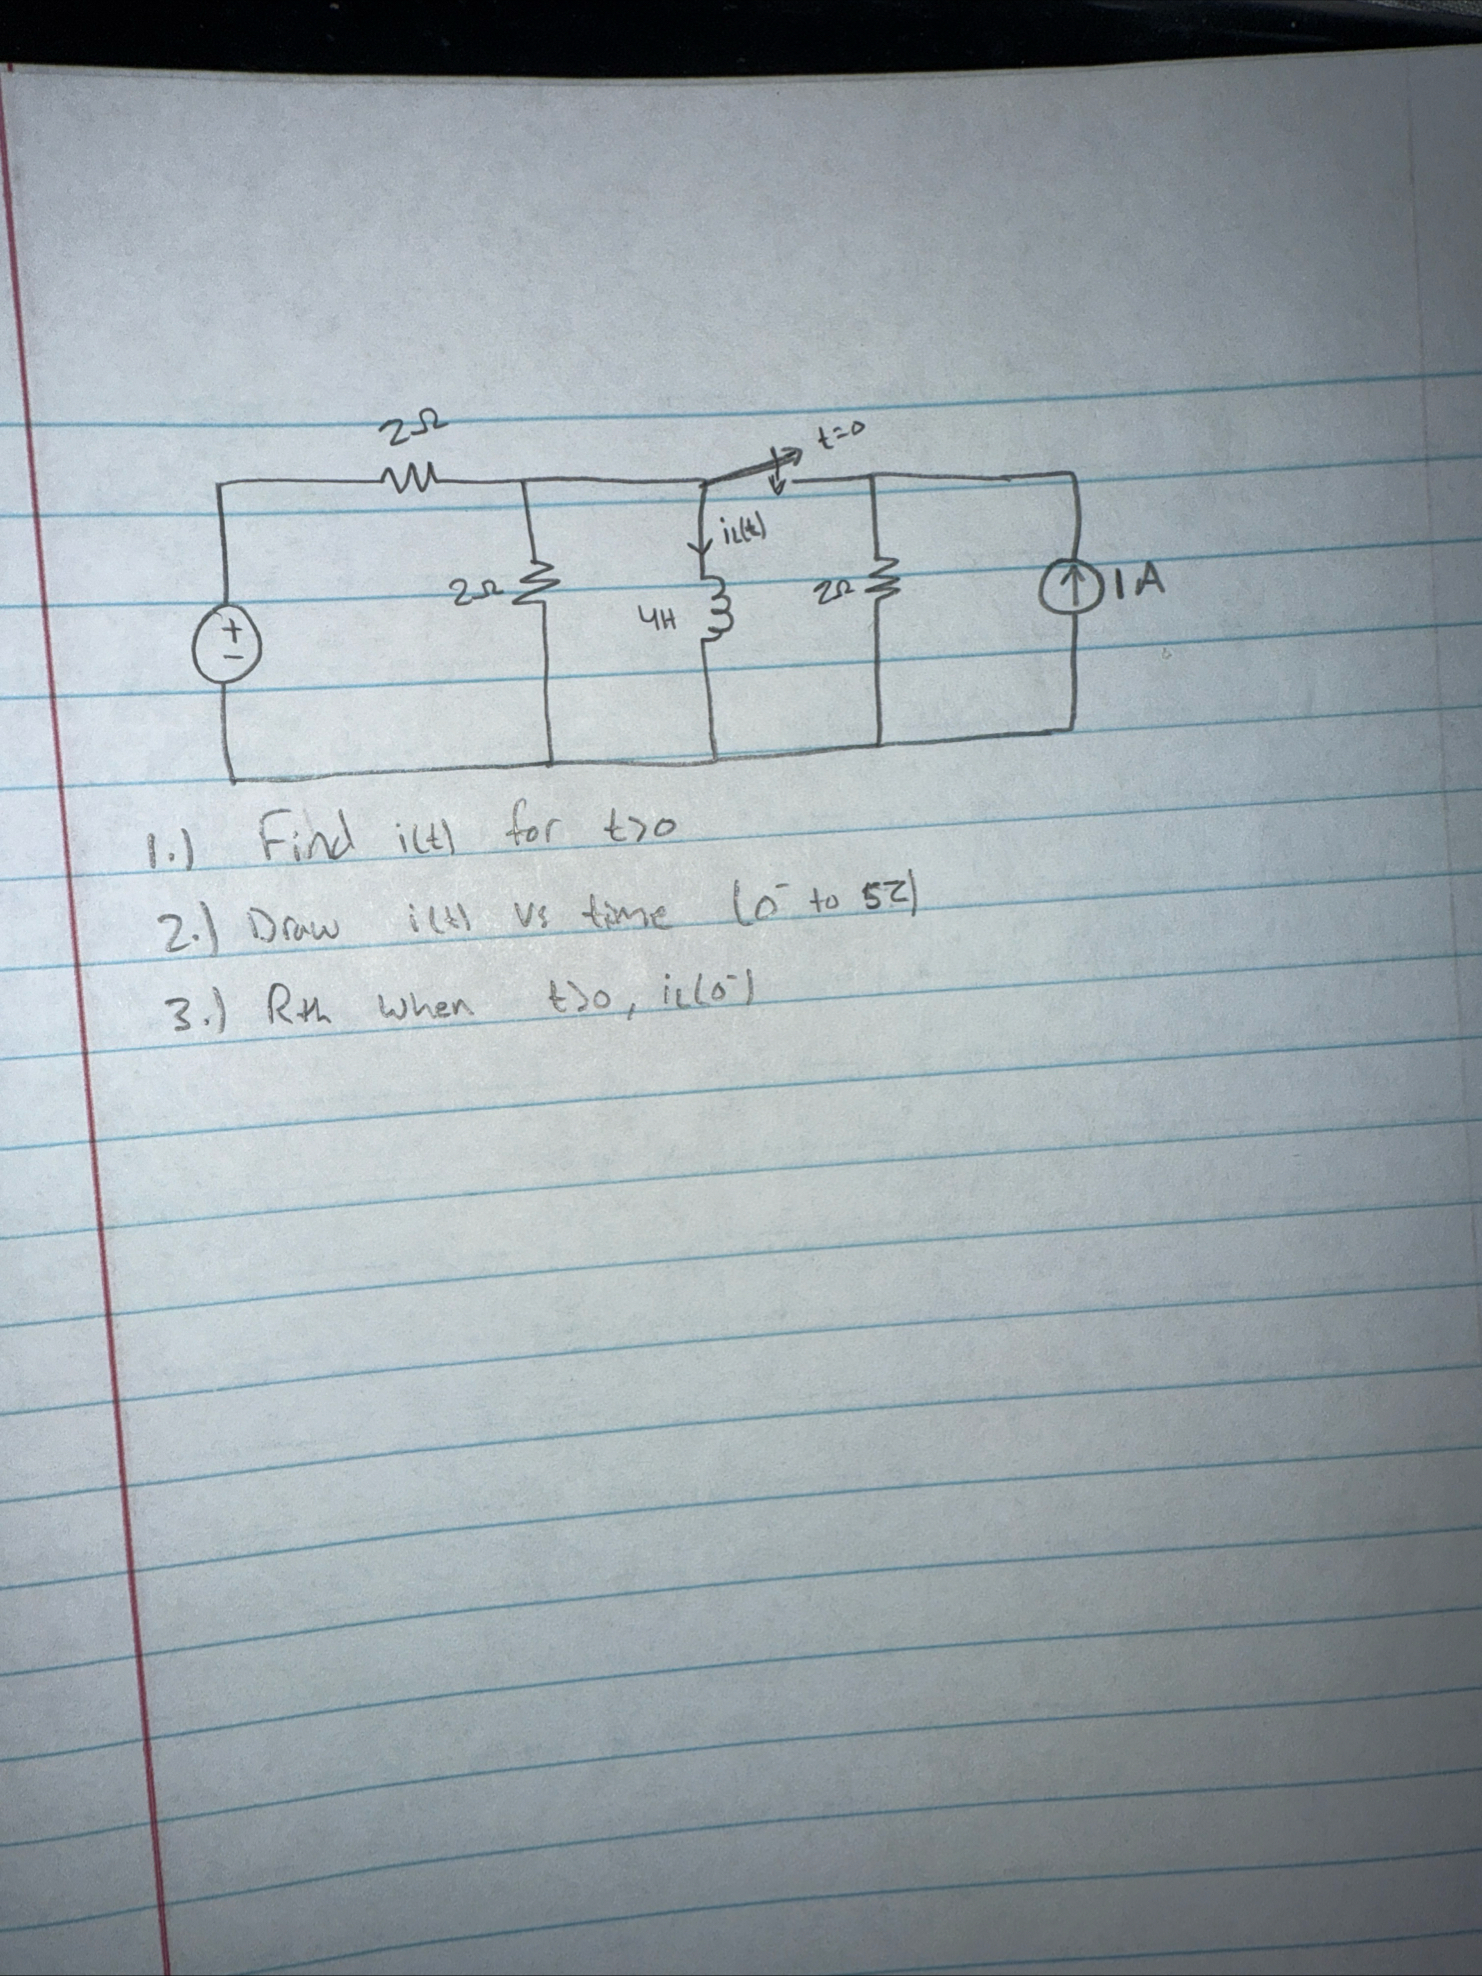 2Ω
t=0
iL(t)
2Ω
4H
2Ω
1A
+
−
1.) Find i(t) for t>0
2.) Draw i(t) vs time (0⁻ to 5τ)
3.) Rth when t>0, iL(0⁻)